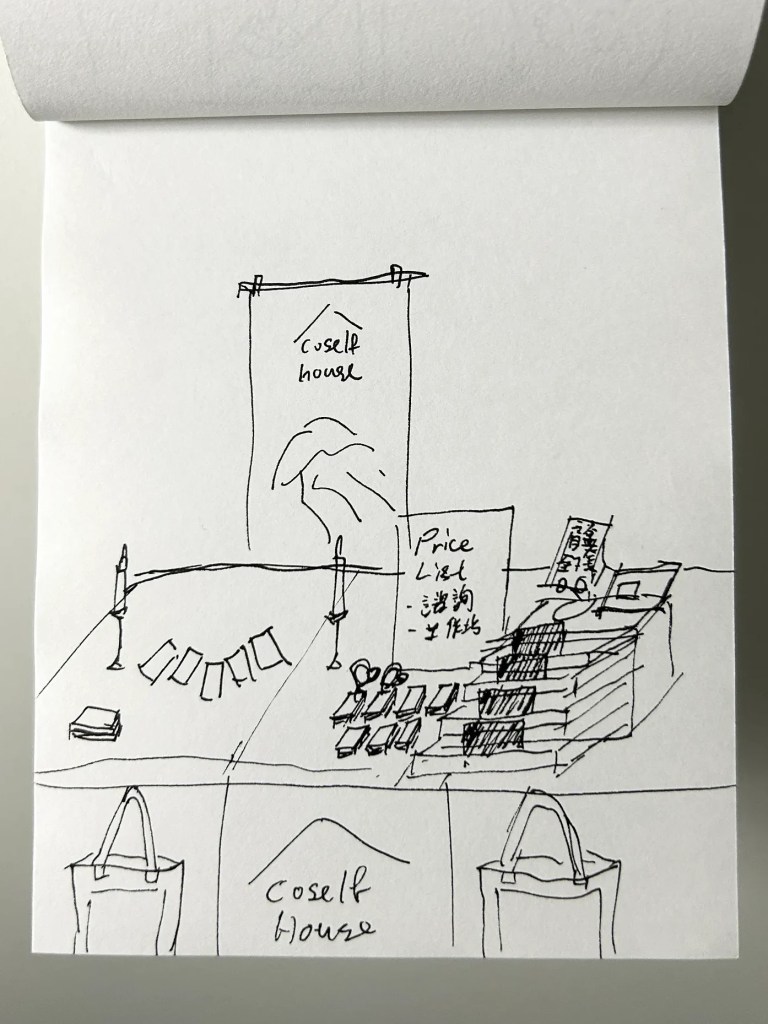 Coself
house
Price
List
- 諮詢
- 工作坊
Coself
House